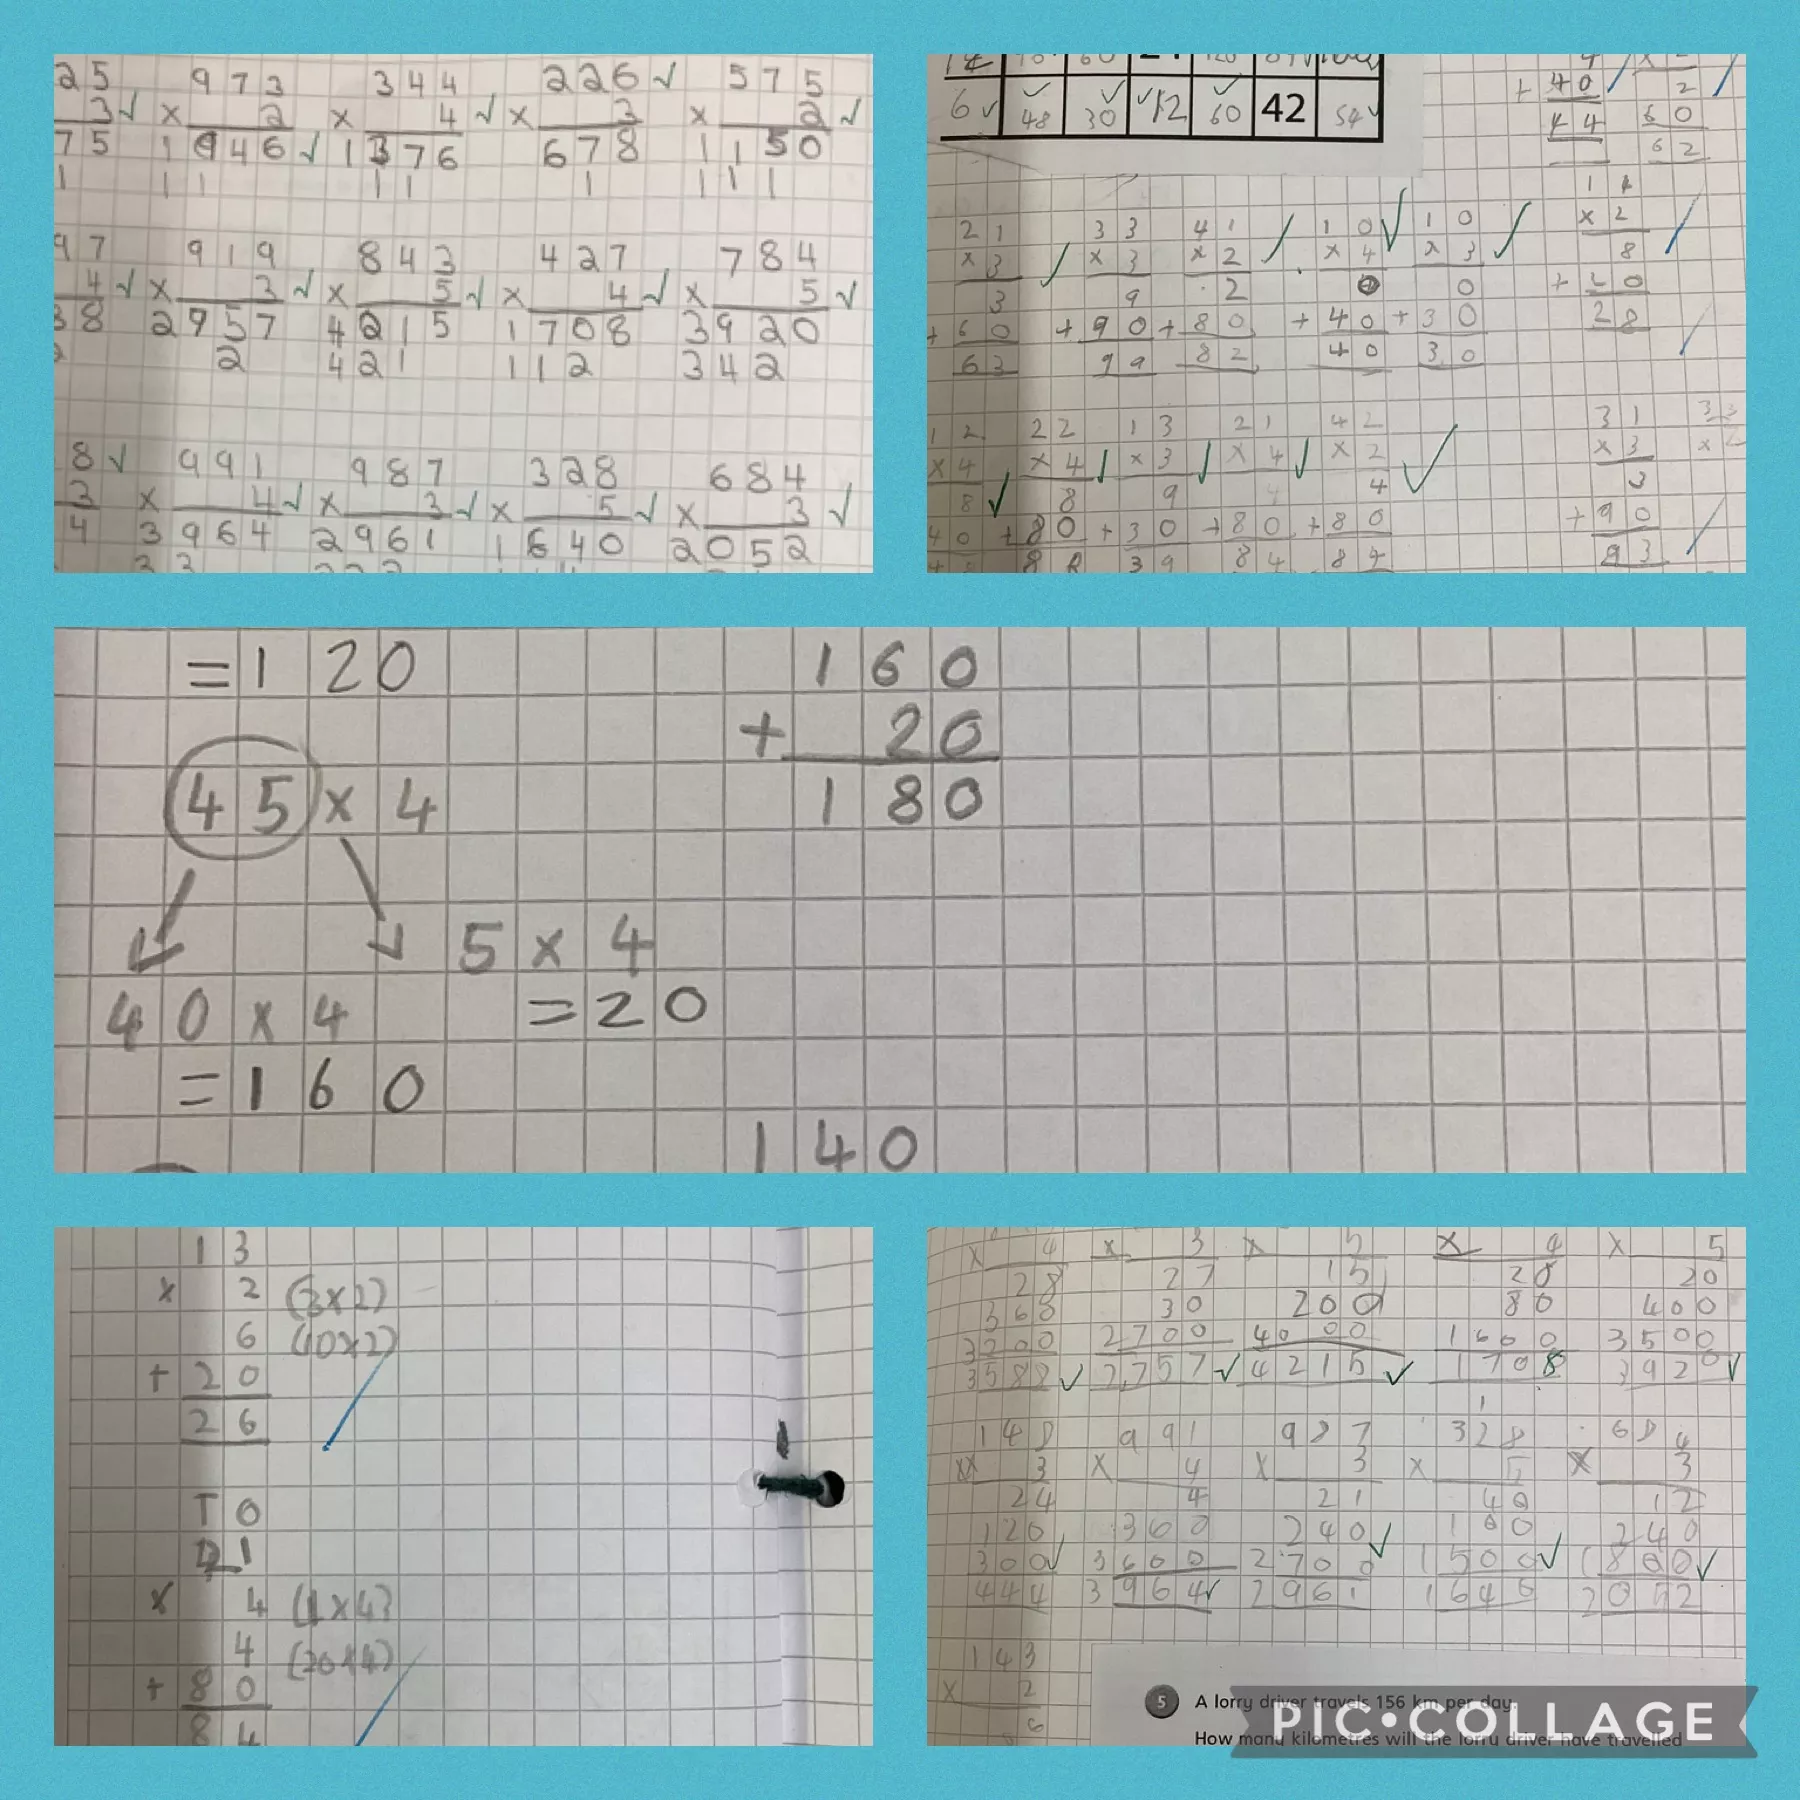 25 973 344 226 ✓ 575
3 ✓ × 2 × 4 ✓ × 3 × 2 ✓
75 1946 ✓ 1376 678 1150
1 11 11 1 111
97 919 843 427 784
4 ✓ × 3 ✓ × 5 ✓ × 4 ✓ × 5 ✓
38 2757 4215 1708 3920
2 2 421 112 342
8 ✓ 991 987 328 684
3 × 4 ✓ × 3 ✓ × 5 ✓ × 3 ✓
4 3964 2961 1640 2052
6 ✓ 48 30 12 60 42 54
+ 40 2
44 60
62
21 33 41 10 10
× 3 × 3 × 2 × 4 × 3
3 9 2 0 0
+ 60 + 90 + 80 + 40 + 30
63 99 82 40 30
14
× 2
8
+ 20
28
12 22 13 21 42
× 4 × 4 × 3 × 4 × 2
8 8 9 4 4
40 + 80 + 30 + 80 + 80
88 39 84 84
31
× 3
3
+ 90
93
= 120
160
+ 20
180
45 × 4
5 × 4
= 20
40 × 4
= 160
140
13
× 2 (3×2)
6 (10×2)
+ 20
26
T O
21
× 4 (1×4)
4 (20×4)
+ 80
84
× 4 × 3 × 5 × 4 × 5
28 27 15 28 20
360 30 200 80 400
3200 2700 4000 1600 3500
3588 ✓ 2757 ✓ 4215 ✓ 1708 3920 ✓
148 991 987 328 684
× 3 × 4 × 3 × 5 × 3
24 4 21 40 12
120 360 240 100 240
300 3600 2700 1500 1800
444 3964 2961 1640 2052
143
× 2
6
5 A lorry driver travels 156 km per day.
How many kilometres will the lorry driver have travelled
PIC•COLLAGE